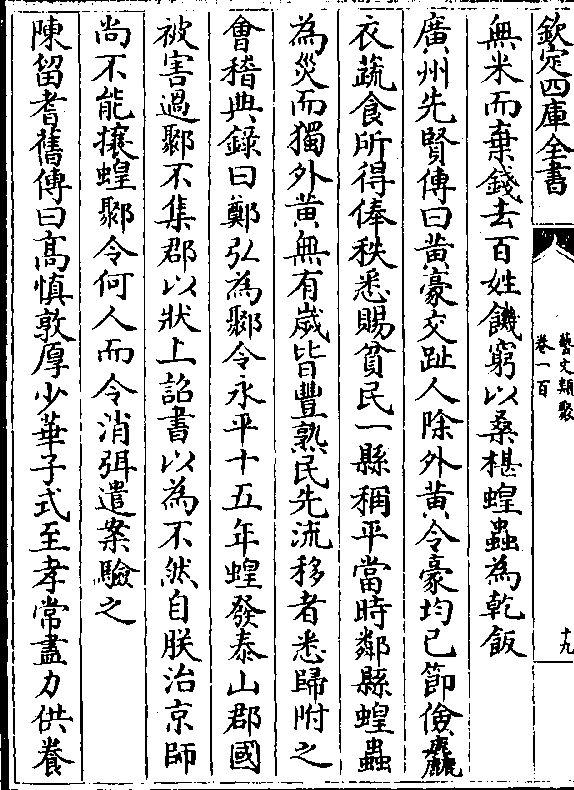 欽定四庫全書
藝文類聚
卷一百
十九
無米而棄錢去百姓饑窮以桑椹蝗蟲為乾飯
廣州先賢傳曰黄豪交趾人除外黄令豪均已節儉麤
衣蔬食所得俸秩悉賜貧民一縣稱平當時鄰縣蝗蟲
為災而獨外黄無有嵗皆豐熟民先流移者悉歸附之
會稽典錄曰鄭弘為鄹令永平十五年蝗發泰山郡國
被害過鄹不集郡以狀上詔書以為不然自朕治京師
尚不能攘蝗鄹令何人而令消弭遣案驗之
陳留耆舊傳曰髙慎敦厚少華子式至孝常盡力供養